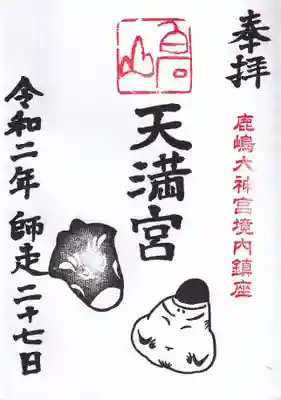 奉拝
鹿嶋大神宮境内鎮座
天満宮
令和二年 師走 二十七日